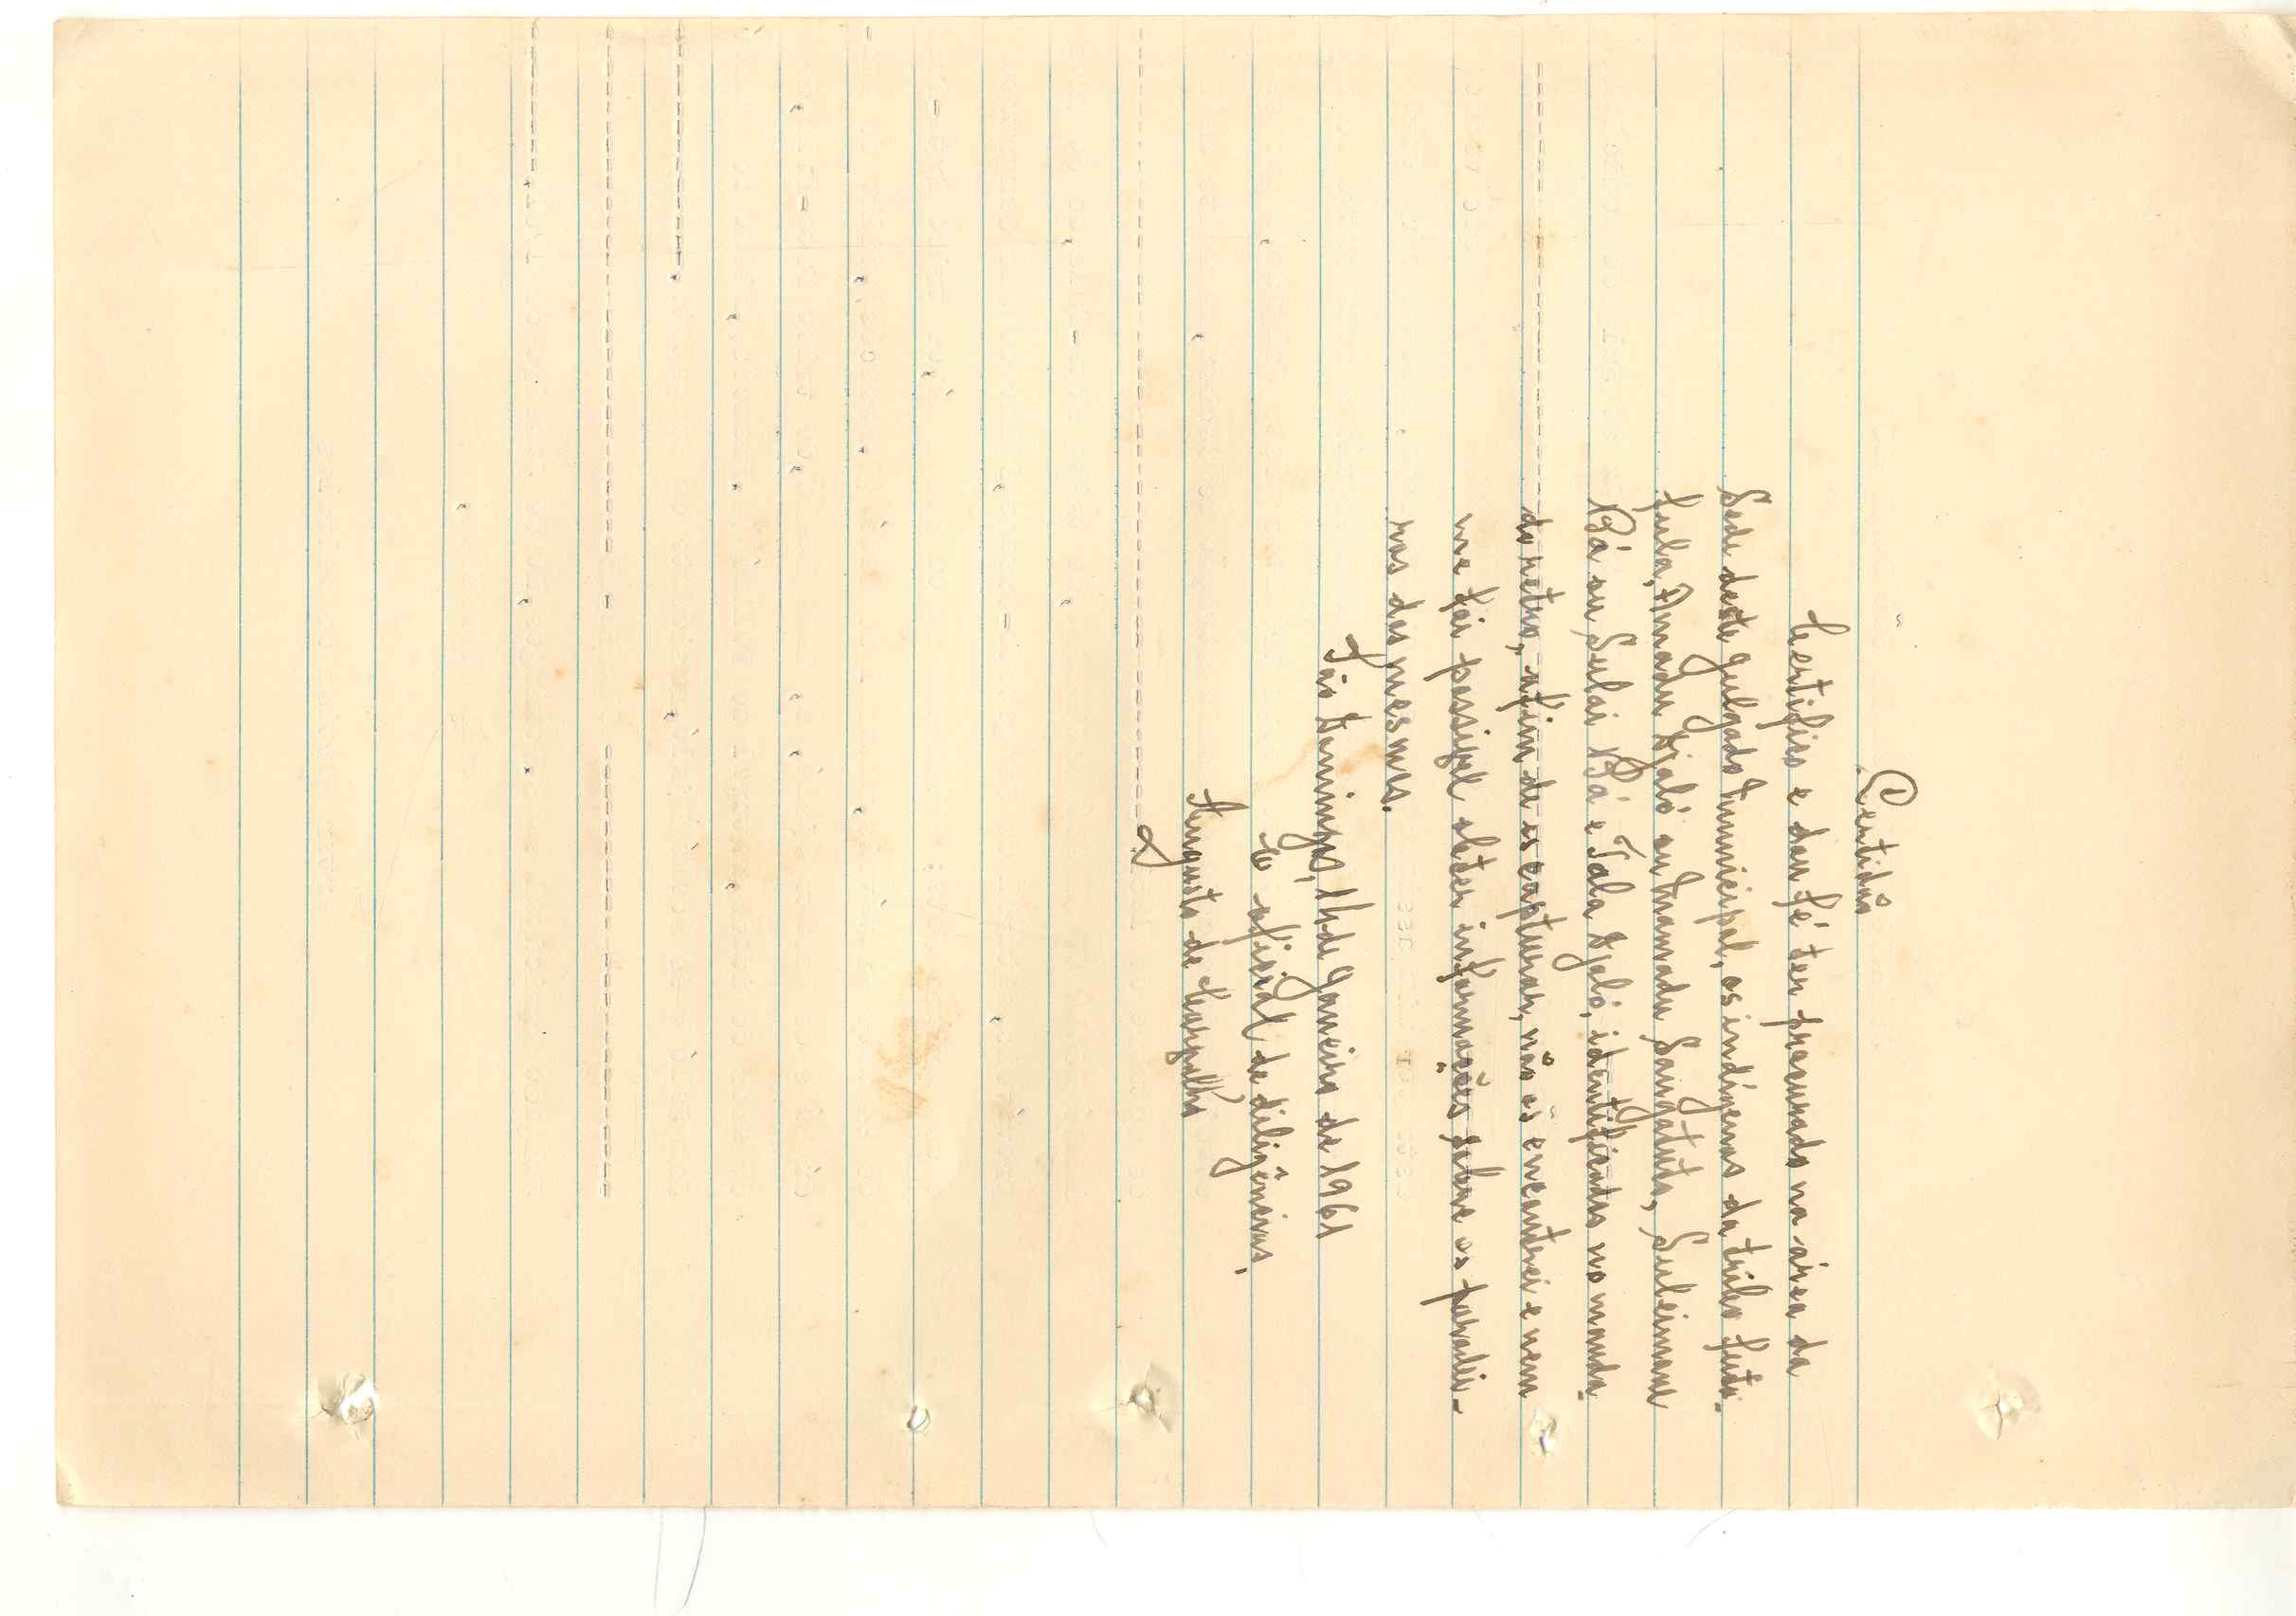 Certidão
Certifico e dou fé ter procurado na área da
Sede deste Julgado Municipal, os indígenas da tribo futa-
fula, Amadu Djaló ou Mamadu Sanatuto, Suleimane
Bá ou Sulai Bá e Tala Djaló, identificados no manda-
do retro, afim de os capturar, não os encontrei e nem
me foi possivel obter informações sobre os paradei-
ros dos mesmos.
São Domingos, 14 de Janeiro de 1961
O oficial de diligências,
Augusto de Carvalho